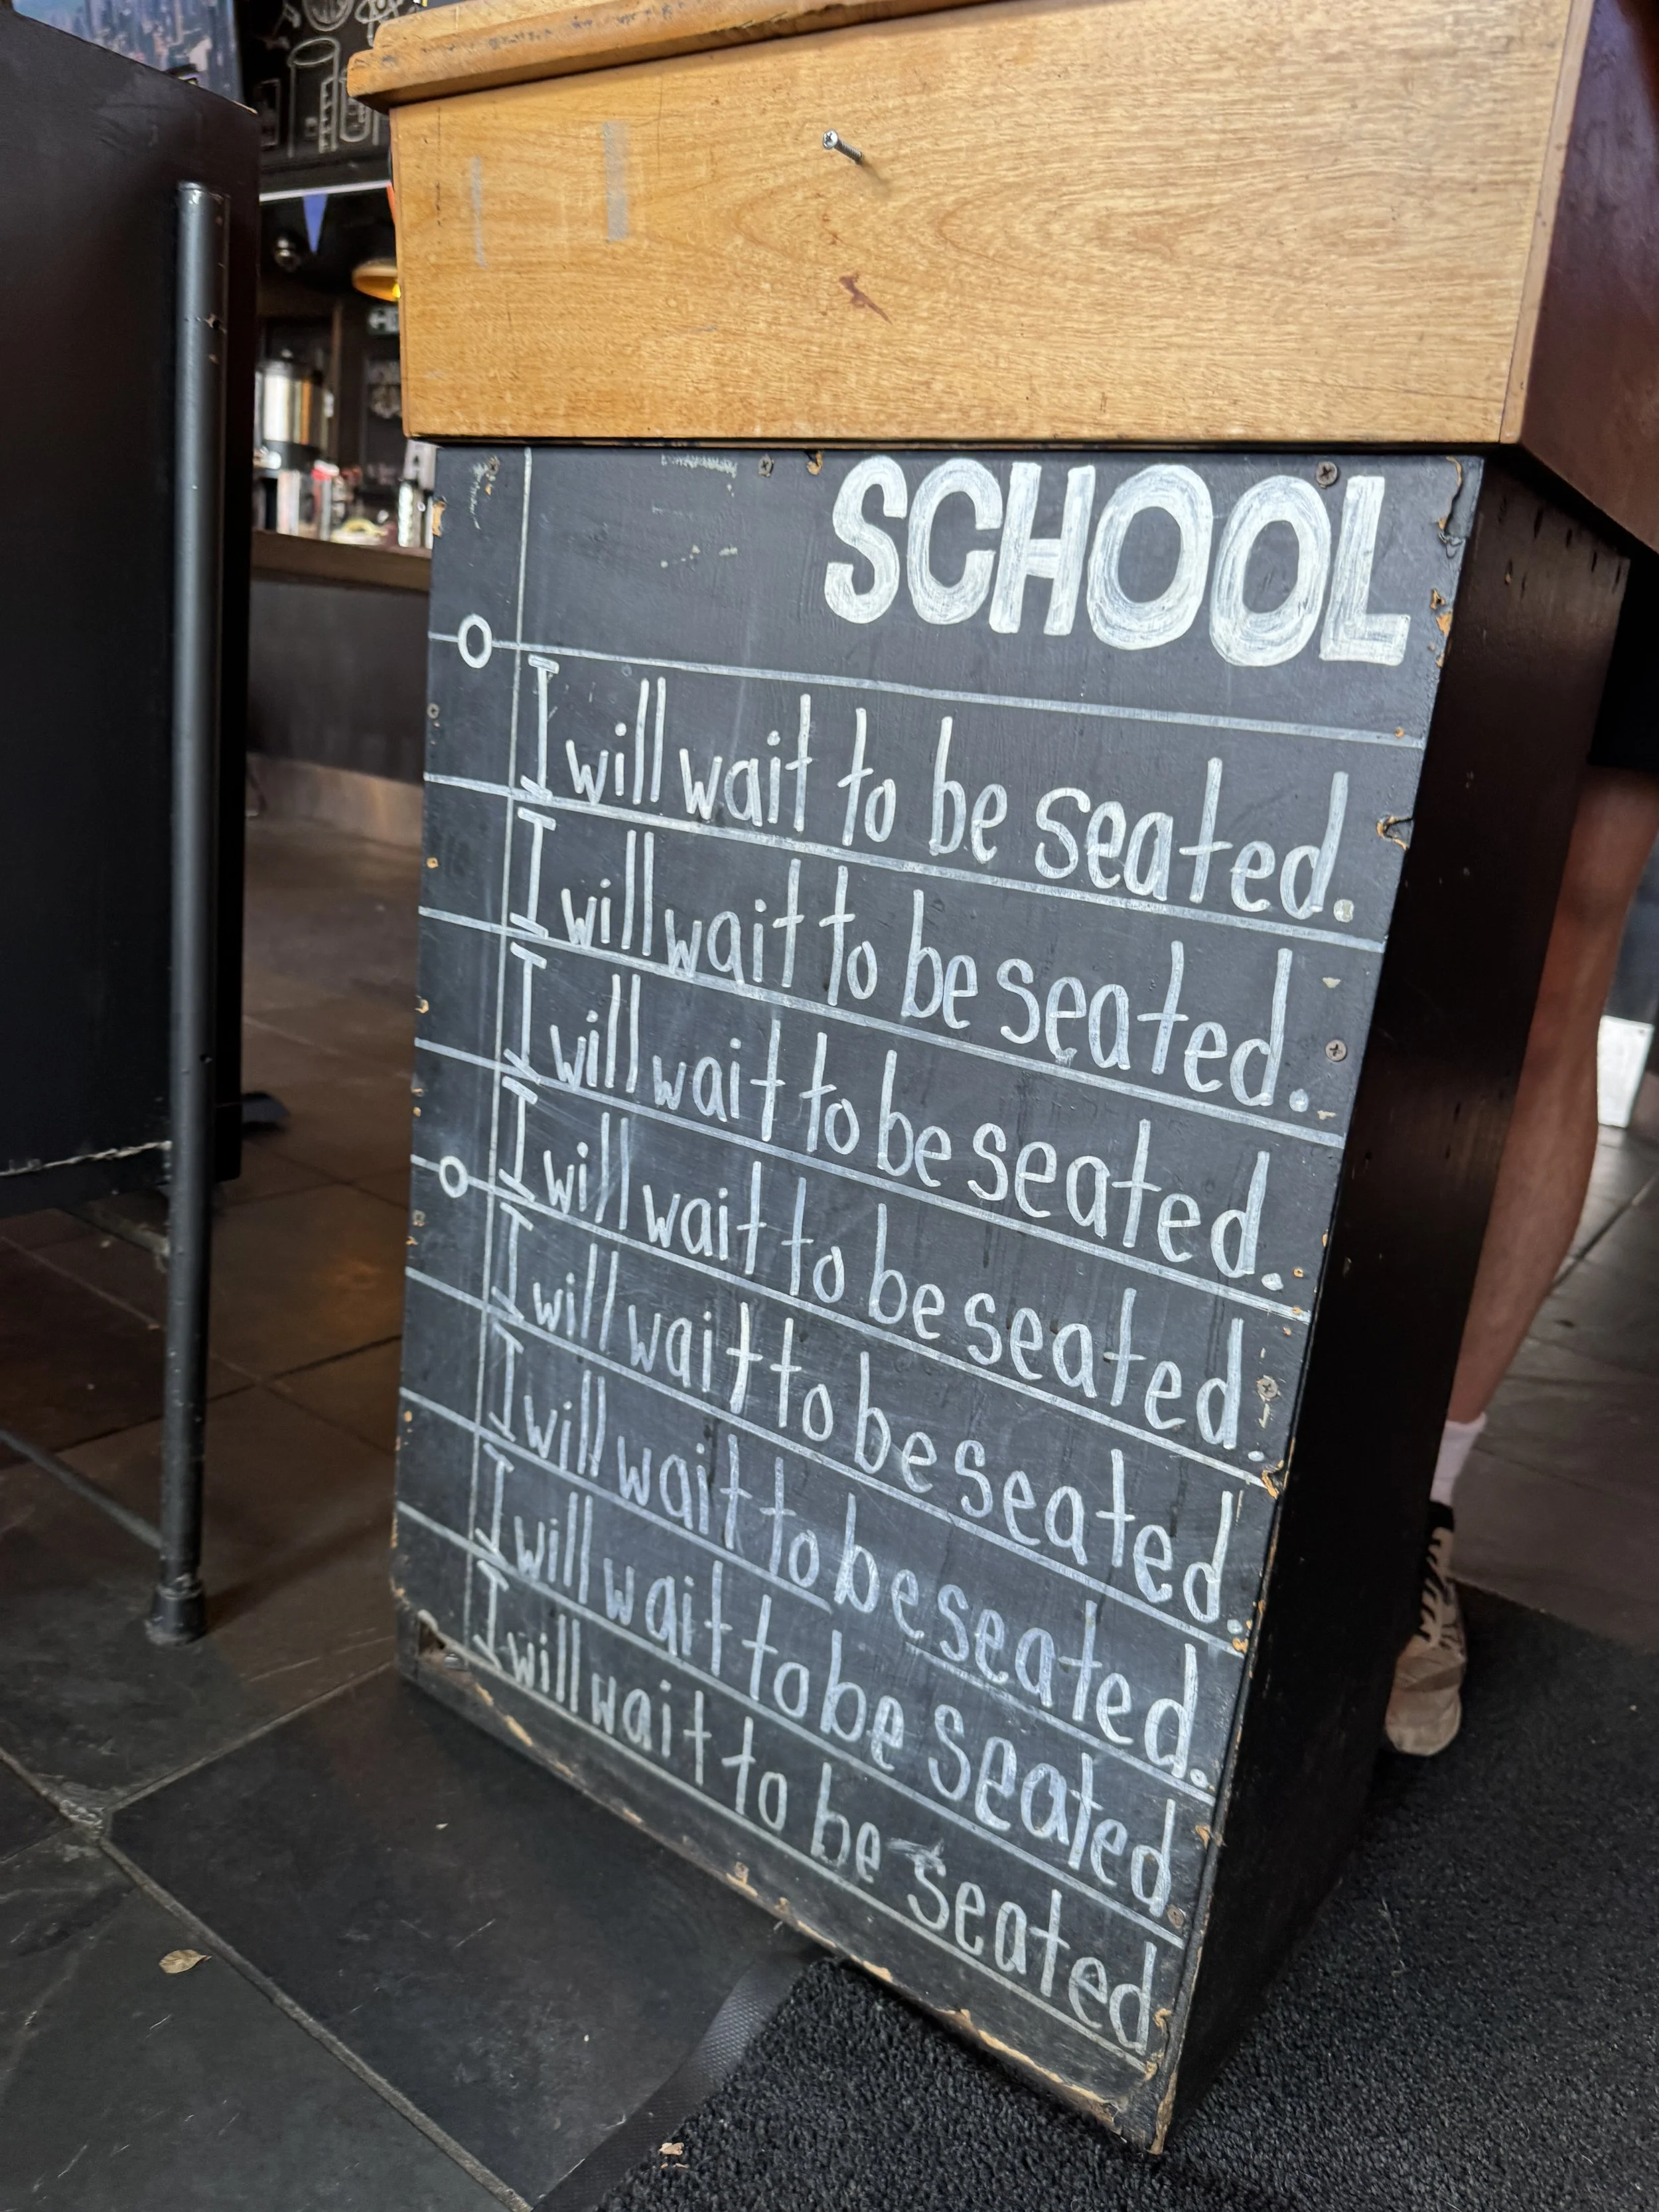 SCHOOL
I will wait to be seated.
I will wait to be seated.
I will wait to be seated.
I will wait to be seated.
I will wait to be seated.
I will wait to be seated.
I will wait to be seated
I will wait to be seated